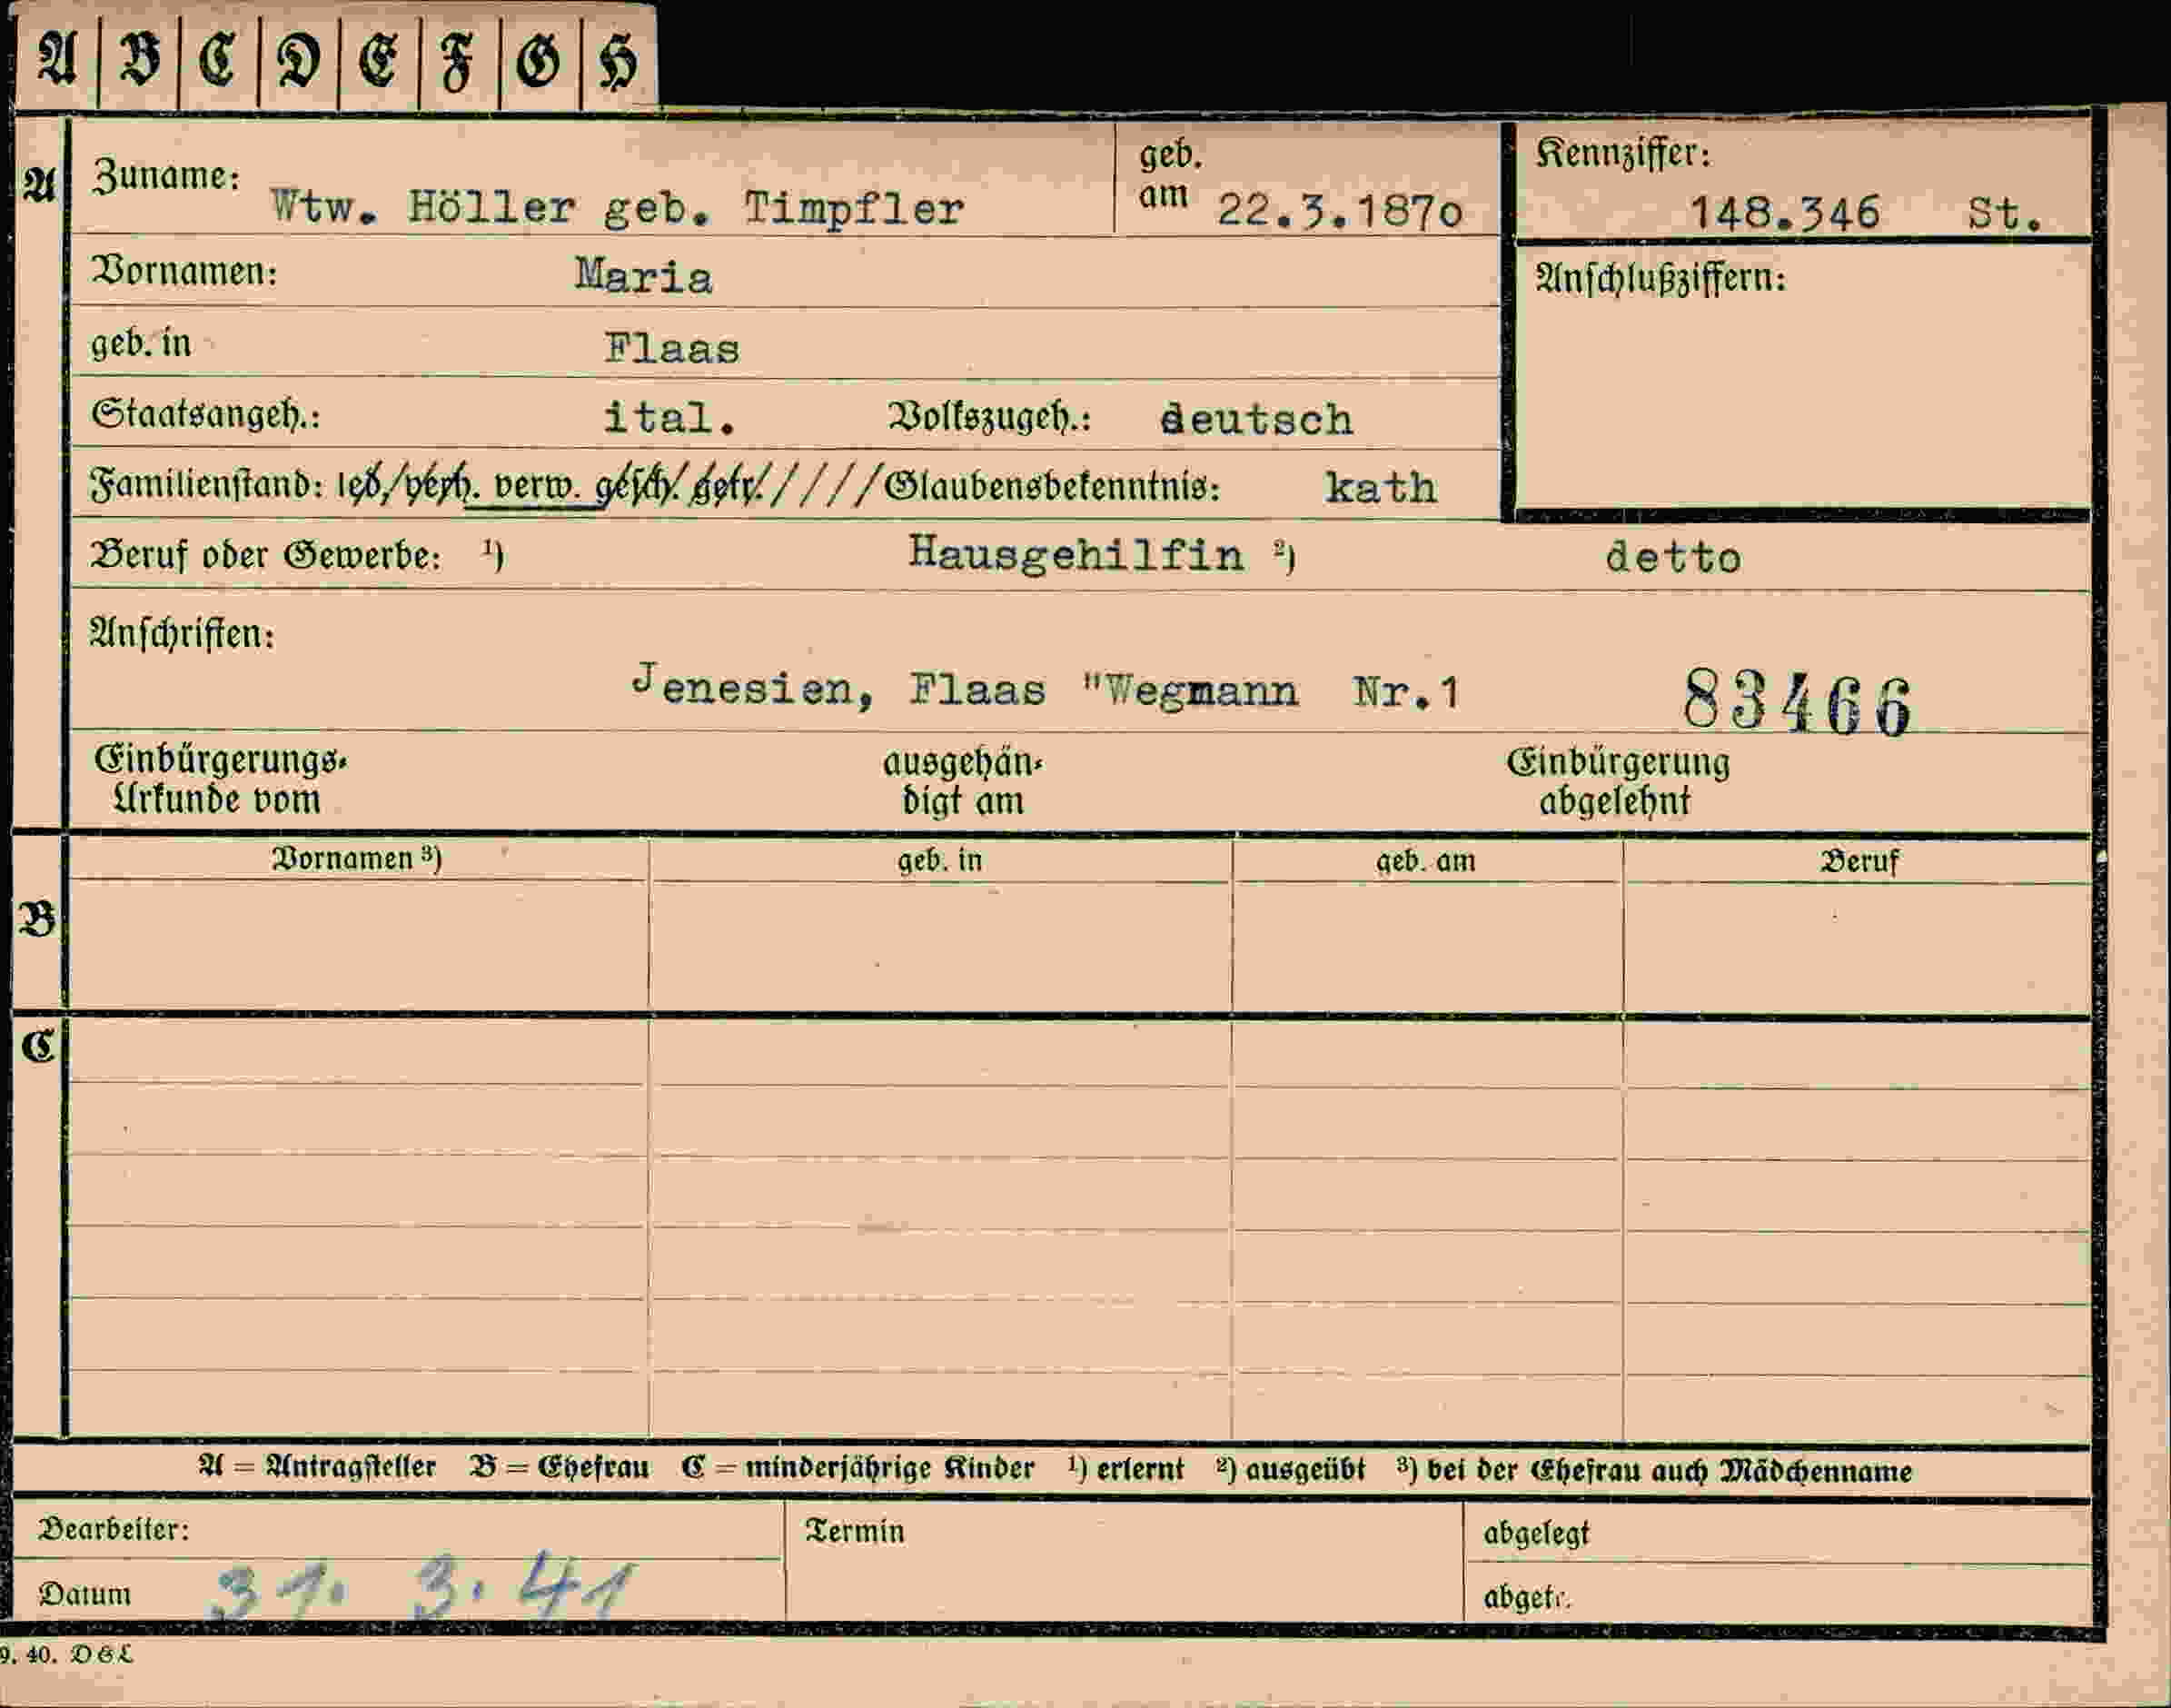 A B C D E F G H
A Zuname: Wtw. Höller geb. Timpfler geb. am 22.3.187o Kennziffer: 148.346 St.
Vornamen: Maria Anschlußziffern:
geb. in Flaas
Staatsangeh.: ital. Volkszugeh.: deutsch
Familienstand: led. verh. verw. gesch. getr. /////Glaubensbekenntnis: kath
Beruf oder Gewerbe: 1) Hausgehilfin 2) detto
Anschriften:
Jenesien, Flaas "Wegmann Nr.1 83466
Einbürgerungs- ausgehän- Einbürgerung
Urkunde vom digt am abgelehnt
Vornamen 3) geb. in geb. am Beruf
B
C
A = Antragsteller B = Ehefrau C = minderjährige Kinder 1) erlernt 2) ausgeübt 3) bei der Ehefrau auch Mädchenname
Bearbeiter: Termin abgelegt
Datum 31. 3. 41 abgetr.
9. 40. D&L